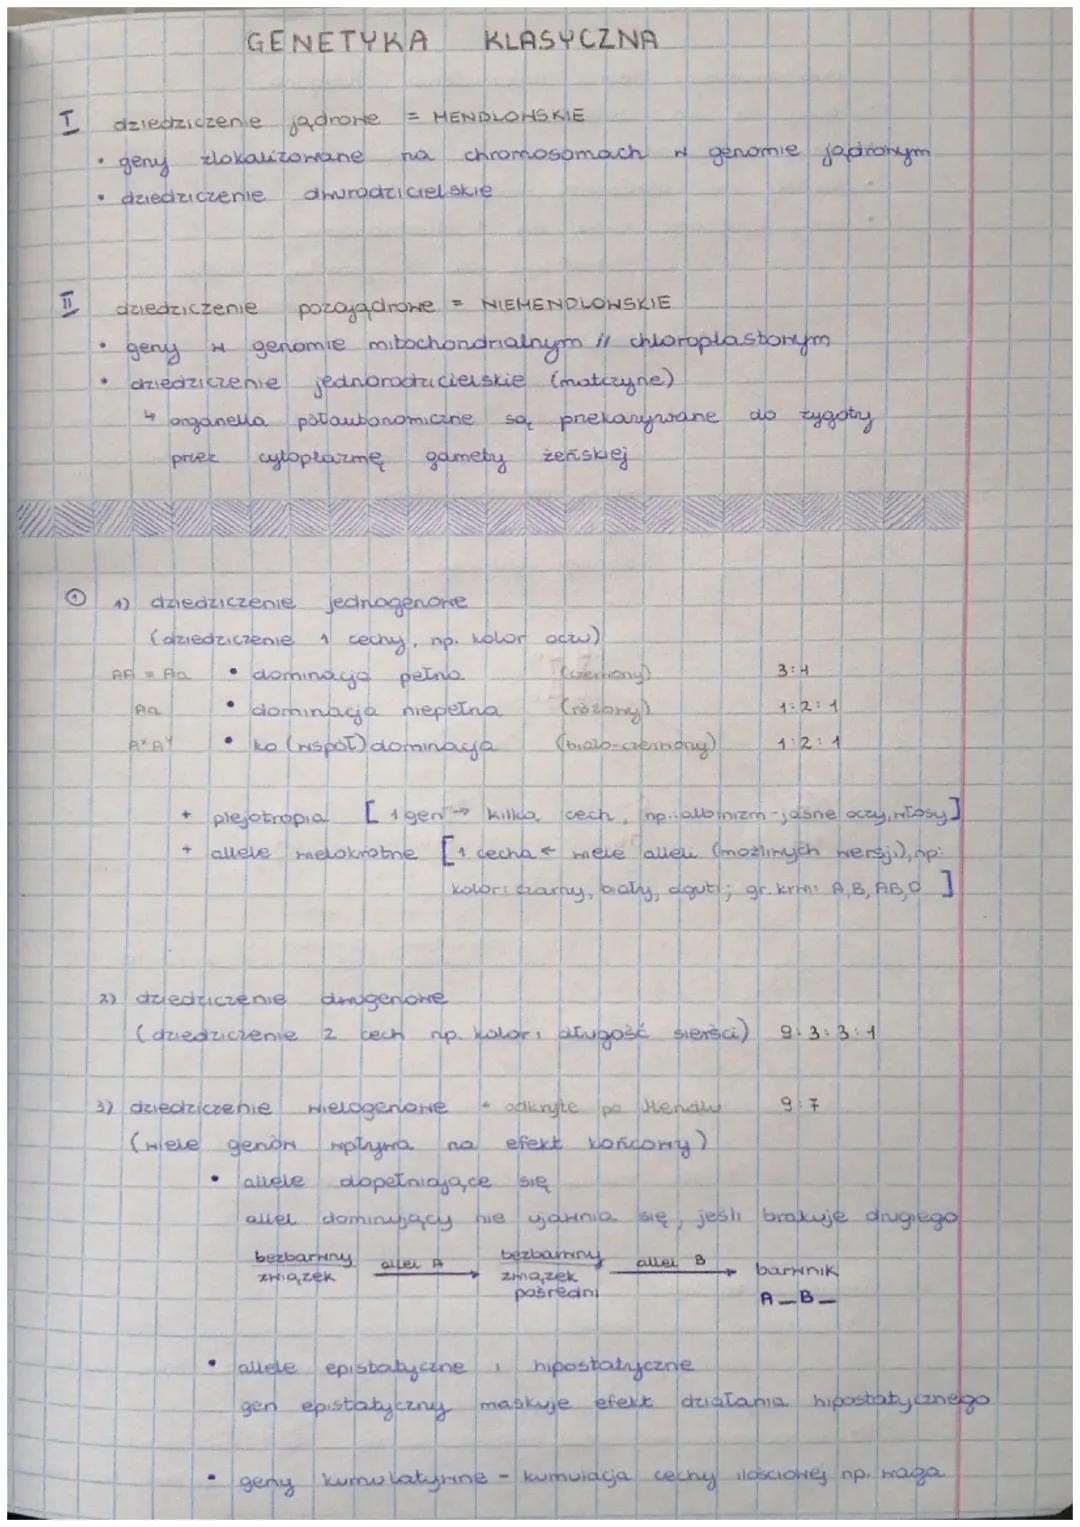 GENETYKA KLASYCZNA
I dziedziczenie jądrowe = MENDLOWSKIE
• geny zlokalizowane na chromosomach w genomie jądrowym
• dziedziczenie dwurodzicielskie
II dziedziczenie pozajądrowe = NIEMENDLOWSKIE
• geny w genomie mitochondrialnym i/ chloroplastowym
• dziedziczenie jednorodzicielskie (matczyne)
↳ organella półautonomiczne są przekazywane do zygoty
przez cytoplazmę gamety żeńskiej
① 1) dziedziczenie jednogenowe
(dziedziczenie 1 cechy, np. kolor oczu)
AA = Aa • dominacja pełna (czerwony) 3:1
Aa • dominacja niepełna (różowy) 1:2:1
AˣAʸ • ko (współ) dominacja (biało-czerwony) 1:2:1
+ plejotropia [1 gen → kilka cech, np.: albinizm - jasne oczy, włosy]
+ allele wielokrotne [1 cecha ← wiele alleli (możliwych wersji), np:
kolor: czarny, biały, aguti; gr. krwi: A, B, AB, 0]
2) dziedziczenie dwugenowe
(dziedziczenie 2 cech np. kolor i długość sierści) 9:3:3:1
3) dziedziczenie wielogenowe • odkryte po Mendlu 9:7
(wiele genów wpływa na efekt końcowy)
• allele dopełniające się
allel dominujący nie ujawnia się, jeśli brakuje drugiego
bezbarwny związek allel A → bezbarwny związek pośredni allel B → barwnik
A_B_
• allele epistatyczne i hipostatyczne
gen epistatyczny maskuje efekt działania hipostatycznego
• geny kumulatywne - kumulacja cechy ilościowej np. waga